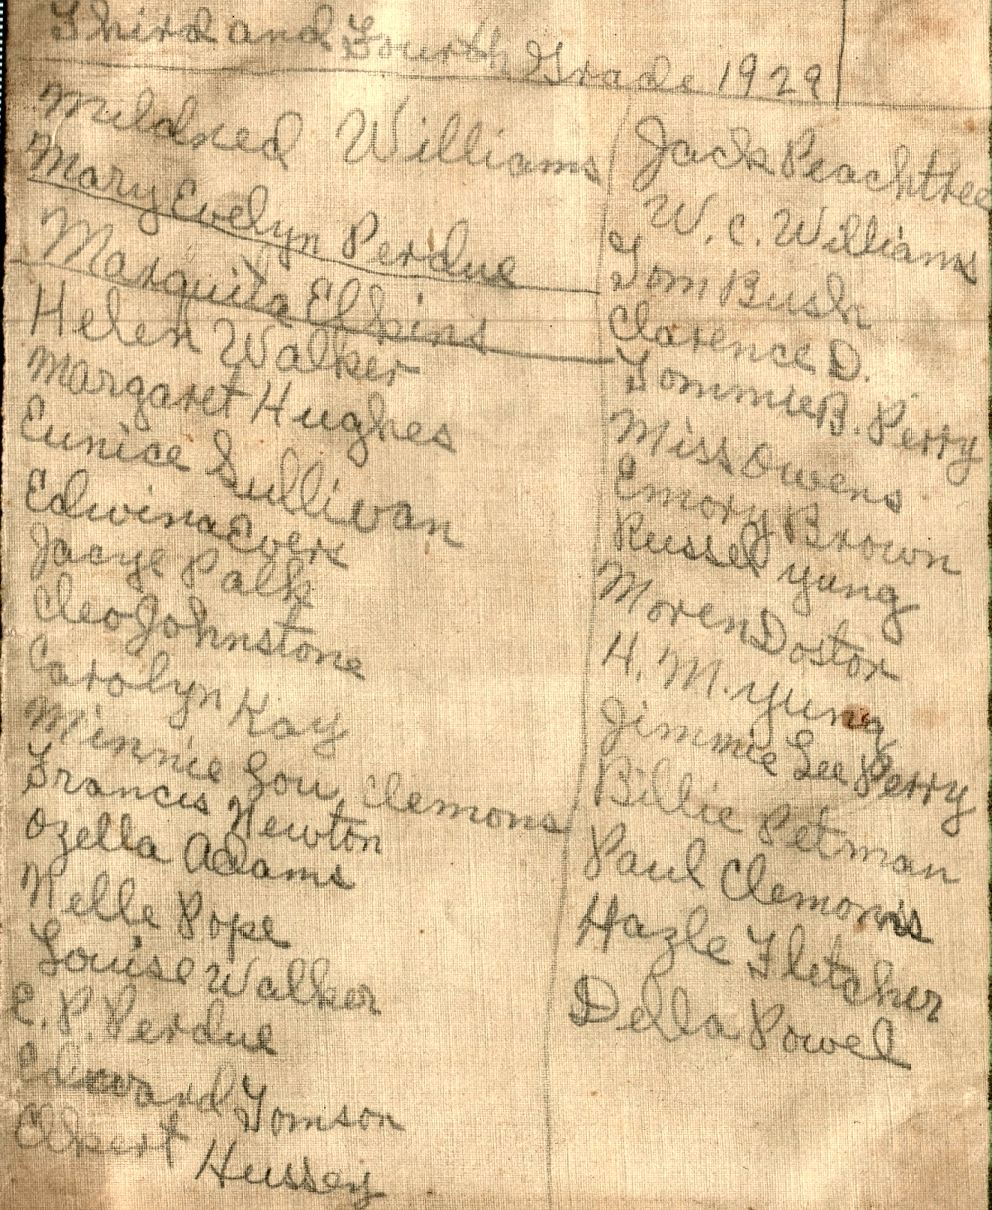 Third and Fourth Grade 1929
Mildred Williams
Mary Evelyn Perdue
Marquita Elkins
Helen Walker
Margaret Hughes
Eunice Sullivan
Edwina Evers
Jacye Palk
Cleo Johnstone
Carolyn Kay
Minnie Lou Clemons
Francis Newton
Ozella Adams
Nelle Pope
Louise Walker
E. P. Perdue
Edward Tomson
Elbert Hussey
Jack Peachtree
W. C. Williams
Tom Bush
Clarence D.
Tommie B. Perry
Miss Owens
Emory Brown
Russel Yung
Moren Dostor
H. M. Yung
Jimmie Lee Perry
Billie Petman
Paul Clemons
Hazle Fletcher
Della Powel